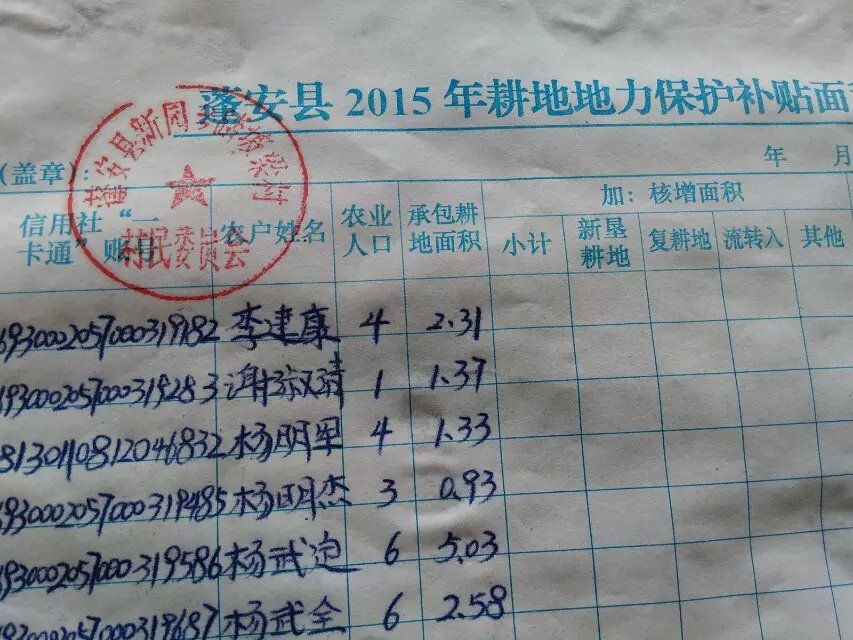 蓬安县2015年耕地地力保护补贴面
(盖章):
年 月
信用社“一卡通”账 农户姓名 农业人口 承包耕地面积 加:核增面积
小计 新垦耕地 复耕地 流转入 其他
村民委员会
930002057000319182 李建康 4 2.31
930002057000319283 1 1.37
8130110812046832 杨明军 4 1.33
930002057000319485 杨明杰 3 0.93
930002057000319586 杨武 6 5.03
930002057000319687 杨武全 6 2.58